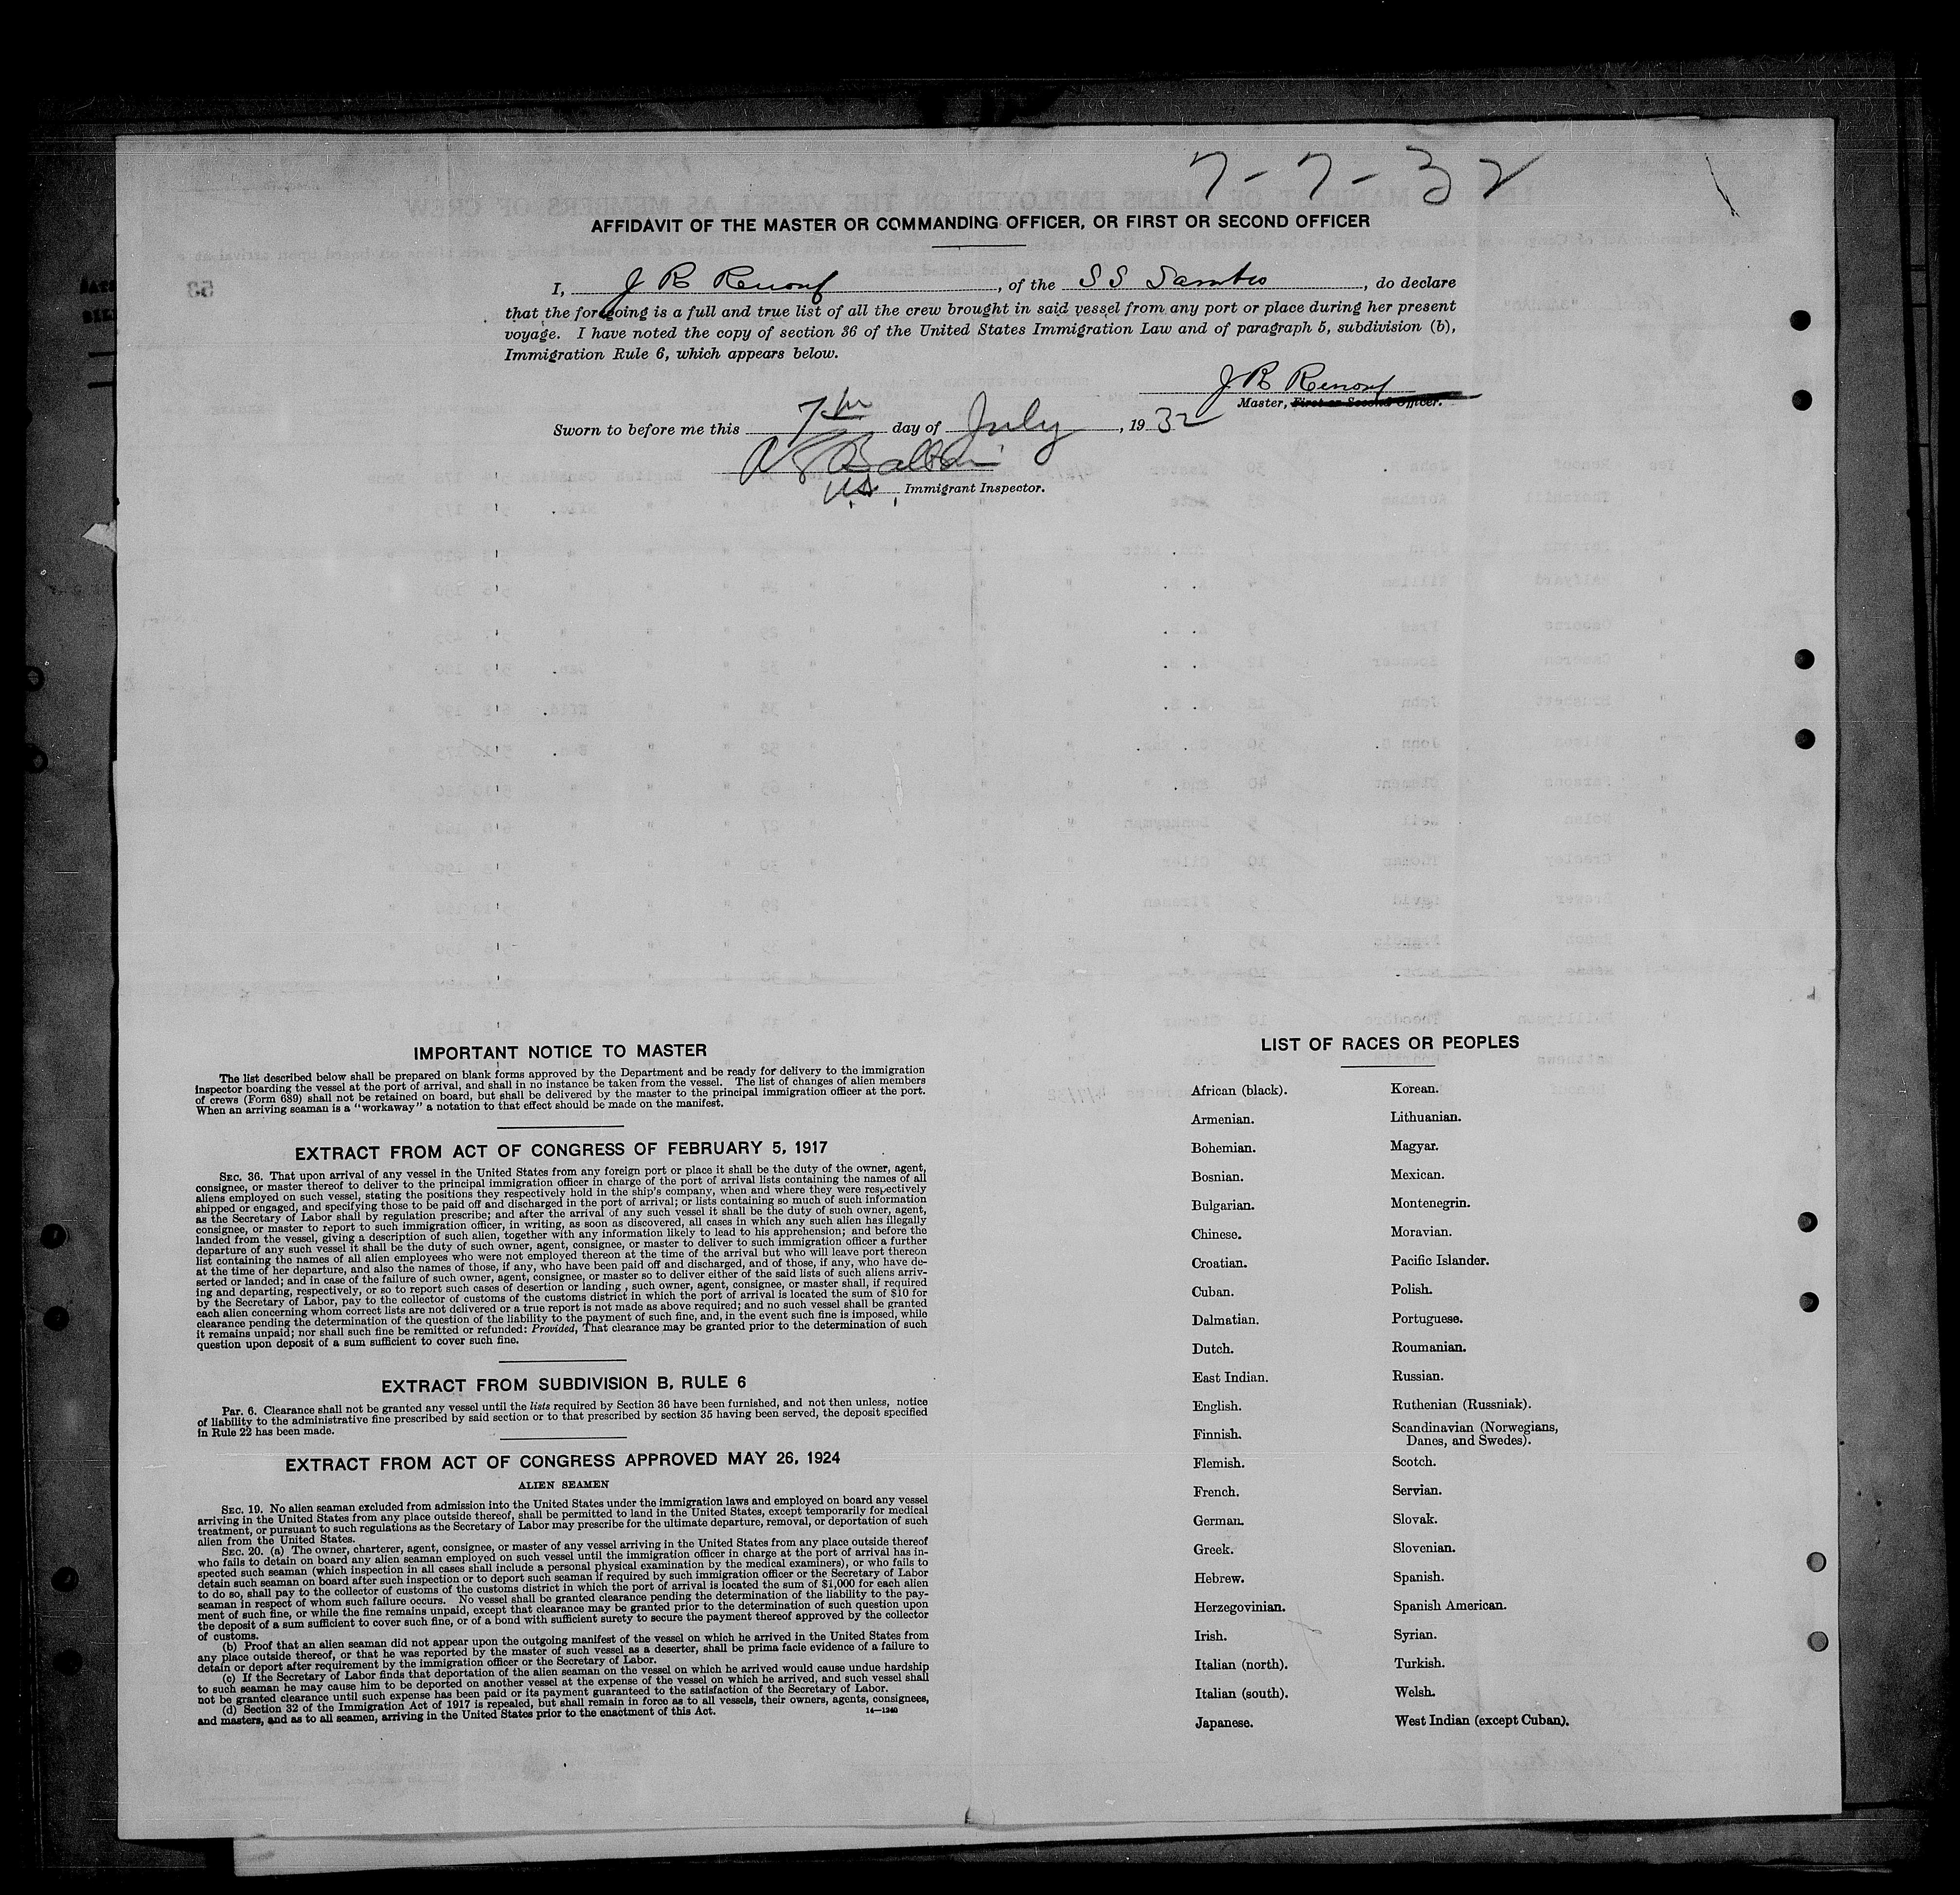 7-7-32
AFFIDAVIT OF THE MASTER OR COMMANDING OFFICER, OR FIRST OR SECOND OFFICER
I, J R Renouf, of the S S Sambro, do declare
that the foregoing is a full and true list of all the crew brought in said vessel from any port or place during her present
voyage. I have noted the copy of section 36 of the United States Immigration Law and of paragraph 5, subdivision (b),
Immigration Rule 6, which appears below.
J R Renouf
Master, First or Second Officer.
Sworn to before me this 7th day of July, 1932
Immigrant Inspector.
IMPORTANT NOTICE TO MASTER
The list described below shall be prepared on blank forms approved by the Department and be ready for delivery to the immigration
inspector boarding the vessel at the port of arrival, and shall in no instance be taken from the vessel. The list of changes of alien members
of crews (Form 689) shall not be retained on board, but shall be delivered by the master to the principal immigration officer at the port.
When an arriving seaman is a "workaway" a notation to that effect should be made on the manifest.
EXTRACT FROM ACT OF CONGRESS OF FEBRUARY 5, 1917
SEC. 36. That upon arrival of any vessel in the United States from any foreign port or place it shall be the duty of the owner, agent,
consignee, or master thereof to deliver to the principal immigration officer in charge of the port of arrival lists containing the names of all
aliens employed on such vessel, stating the positions they respectively hold in the ship's company, when and where they were respectively
shipped or engaged, and specifying those to be paid off and discharged in the port of arrival; or lists containing so much of such information
as the Secretary of Labor shall by regulation prescribe; and after the arrival of any such vessel it shall be the duty of such owner, agent,
consignee, or master to report to such immigration officer, in writing, as soon as discovered, all cases in which any such alien has illegally
landed from the vessel, giving a description of such alien, together with any information likely to lead to his apprehension; and before the
departure of any such vessel it shall be the duty of such owner, agent, consignee, or master to deliver to such immigration officer a further
list containing the names of all alien employees who were not employed thereon at the time of the arrival but who will leave port thereon
at the time of her departure, and also the names of those, if any, who have been paid off and discharged, and of those, if any, who have de-
serted or landed; and in case of the failure of such owner, agent, consignee, or master so to deliver either of the said lists of such aliens arriv-
ing and departing, respectively, or so to report such cases of desertion or landing , such owner, agent, consignee, or master shall, if required
by the Secretary of Labor, pay to the collector of customs of the customs district in which the port of arrival is located the sum of $10 for
each alien concerning whom correct lists are not delivered or a true report is not made as above required; and no such vessel shall be granted
clearance pending the determination of the question of the liability to the payment of such fine, and, in the event such fine is imposed, while
it remains unpaid; nor shall such fine be remitted or refunded: Provided, That clearance may be granted prior to the determination of such
question upon deposit of a sum sufficient to cover such fine.
EXTRACT FROM SUBDIVISION B, RULE 6
Par. 6. Clearance shall not be granted any vessel until the lists required by Section 36 have been furnished, and not then unless, notice
of liability to the administrative fine prescribed by said section or to that prescribed by section 35 having been served, the deposit specified
in Rule 22 has been made.
EXTRACT FROM ACT OF CONGRESS APPROVED MAY 26, 1924
ALIEN SEAMEN
SEC. 19. No alien seaman excluded from admission into the United States under the immigration laws and employed on board any vessel
arriving in the United States from any place outside thereof, shall be permitted to land in the United States, except temporarily for medical
treatment, or pursuant to such regulations as the Secretary of Labor may prescribe for the ultimate departure, removal, or deportation of such
alien from the United States.
SEC. 20. (a) The owner, charterer, agent, consignee, or master of any vessel arriving in the United States from any place outside thereof
who fails to detain on board any alien seaman employed on such vessel until the immigration officer in charge at the port of arrival has in-
spected such seaman (which inspection in all cases shall include a personal physical examination by the medical examiners), or who fails to
detain such seaman on board after such inspection or to deport such seaman if required by such immigration officer or the Secretary of Labor
to do so, shall pay to the collector of customs of the customs district in which the port of arrival is located the sum of $1,000 for each alien
seaman in respect of whom such failure occurs. No vessel shall be granted clearance pending the determination of the liability to the pay-
ment of such fine, or while the fine remains unpaid, except that clearance may be granted prior to the determination of such question upon
the deposit of a sum sufficient to cover such fine, or of a bond with sufficient surety to secure the payment thereof approved by the collector
of customs.
(b) Proof that an alien seaman did not appear upon the outgoing manifest of the vessel on which he arrived in the United States from
any place outside thereof, or that he was reported by the master of such vessel as a deserter, shall be prima facie evidence of a failure to
detain or deport after requirement by the immigration officer or the Secretary of Labor.
(c) If the Secretary of Labor finds that deportation of the alien seaman on the vessel on which he arrived would cause undue hardship
to such seaman he may cause him to be deported on another vessel at the expense of the vessel on which he arrived, and such vessel shall
not be granted clearance until such expense has been paid or its payment guaranteed to the satisfaction of the Secretary of Labor.
(d) Section 32 of the Immigration Act of 1917 is repealed, but shall remain in force as to all vessels, their owners, agents, consignees,
and masters, and as to all seamen, arriving in the United States prior to the enactment of this Act.
14—1240
LIST OF RACES OR PEOPLES
African (black).
Armenian.
Bohemian.
Bosnian.
Bulgarian.
Chinese.
Croatian.
Cuban.
Dalmatian.
Dutch.
East Indian.
English.
Finnish.
Flemish.
French.
German.
Greek.
Hebrew.
Herzegovinian.
Irish.
Italian (north).
Italian (south).
Japanese.
Korean.
Lithuanian.
Magyar.
Mexican.
Montenegrin.
Moravian.
Pacific Islander.
Polish.
Portuguese.
Roumanian.
Russian.
Ruthenian (Russniak).
Scandinavian (Norwegians,
Danes, and Swedes).
Scotch.
Servian.
Slovak.
Slovenian.
Spanish.
Spanish American.
Syrian.
Turkish.
Welsh.
West Indian (except Cuban).